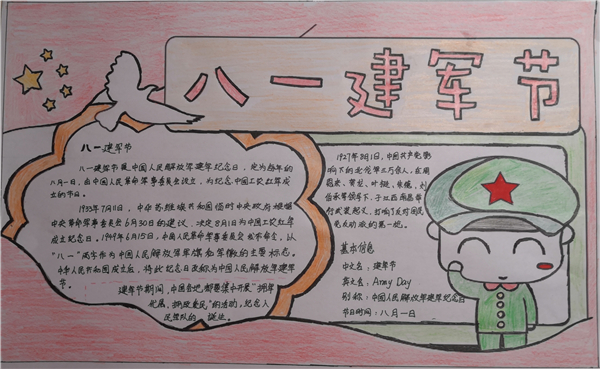 八一建军节
八一建军节
八一建军节是中国人民解放军建军纪念日，定为每年的
八月一日，由中国人民革命军事委员会设立，为纪念中国工农红军成
立的节日。
1933年7月11日，中华苏维埃共和国临时中央政府根据
中央革命军事委员会6月30日的建议，决定8月1日为中国工农红军
成立纪念日。1949年6月15日，中国人民革命军事委员会发布命令，以
"八一"两字作为中国人民解放军军旗和军徽的主要标志。
中华人民共和国成立后，将此纪念日改称为中国人民解放军建军
节。
建军节期间，中国各地都要集中开展"拥军
优属、拥政爱民"的活动，纪念人
民军队的诞生。
1927年8月1日，中国共产党影
响下的北伐军二万余人，在周
恩来、贺龙、叶挺、朱德、刘
伯承等领导下，于江西南昌举
行武装起义，打响了反对国民
党反动派的第一枪。
基本信息
中文名：建军节
英文名：Army Day
别称：中国人民解放军建军纪念日
节日时间：八月一日